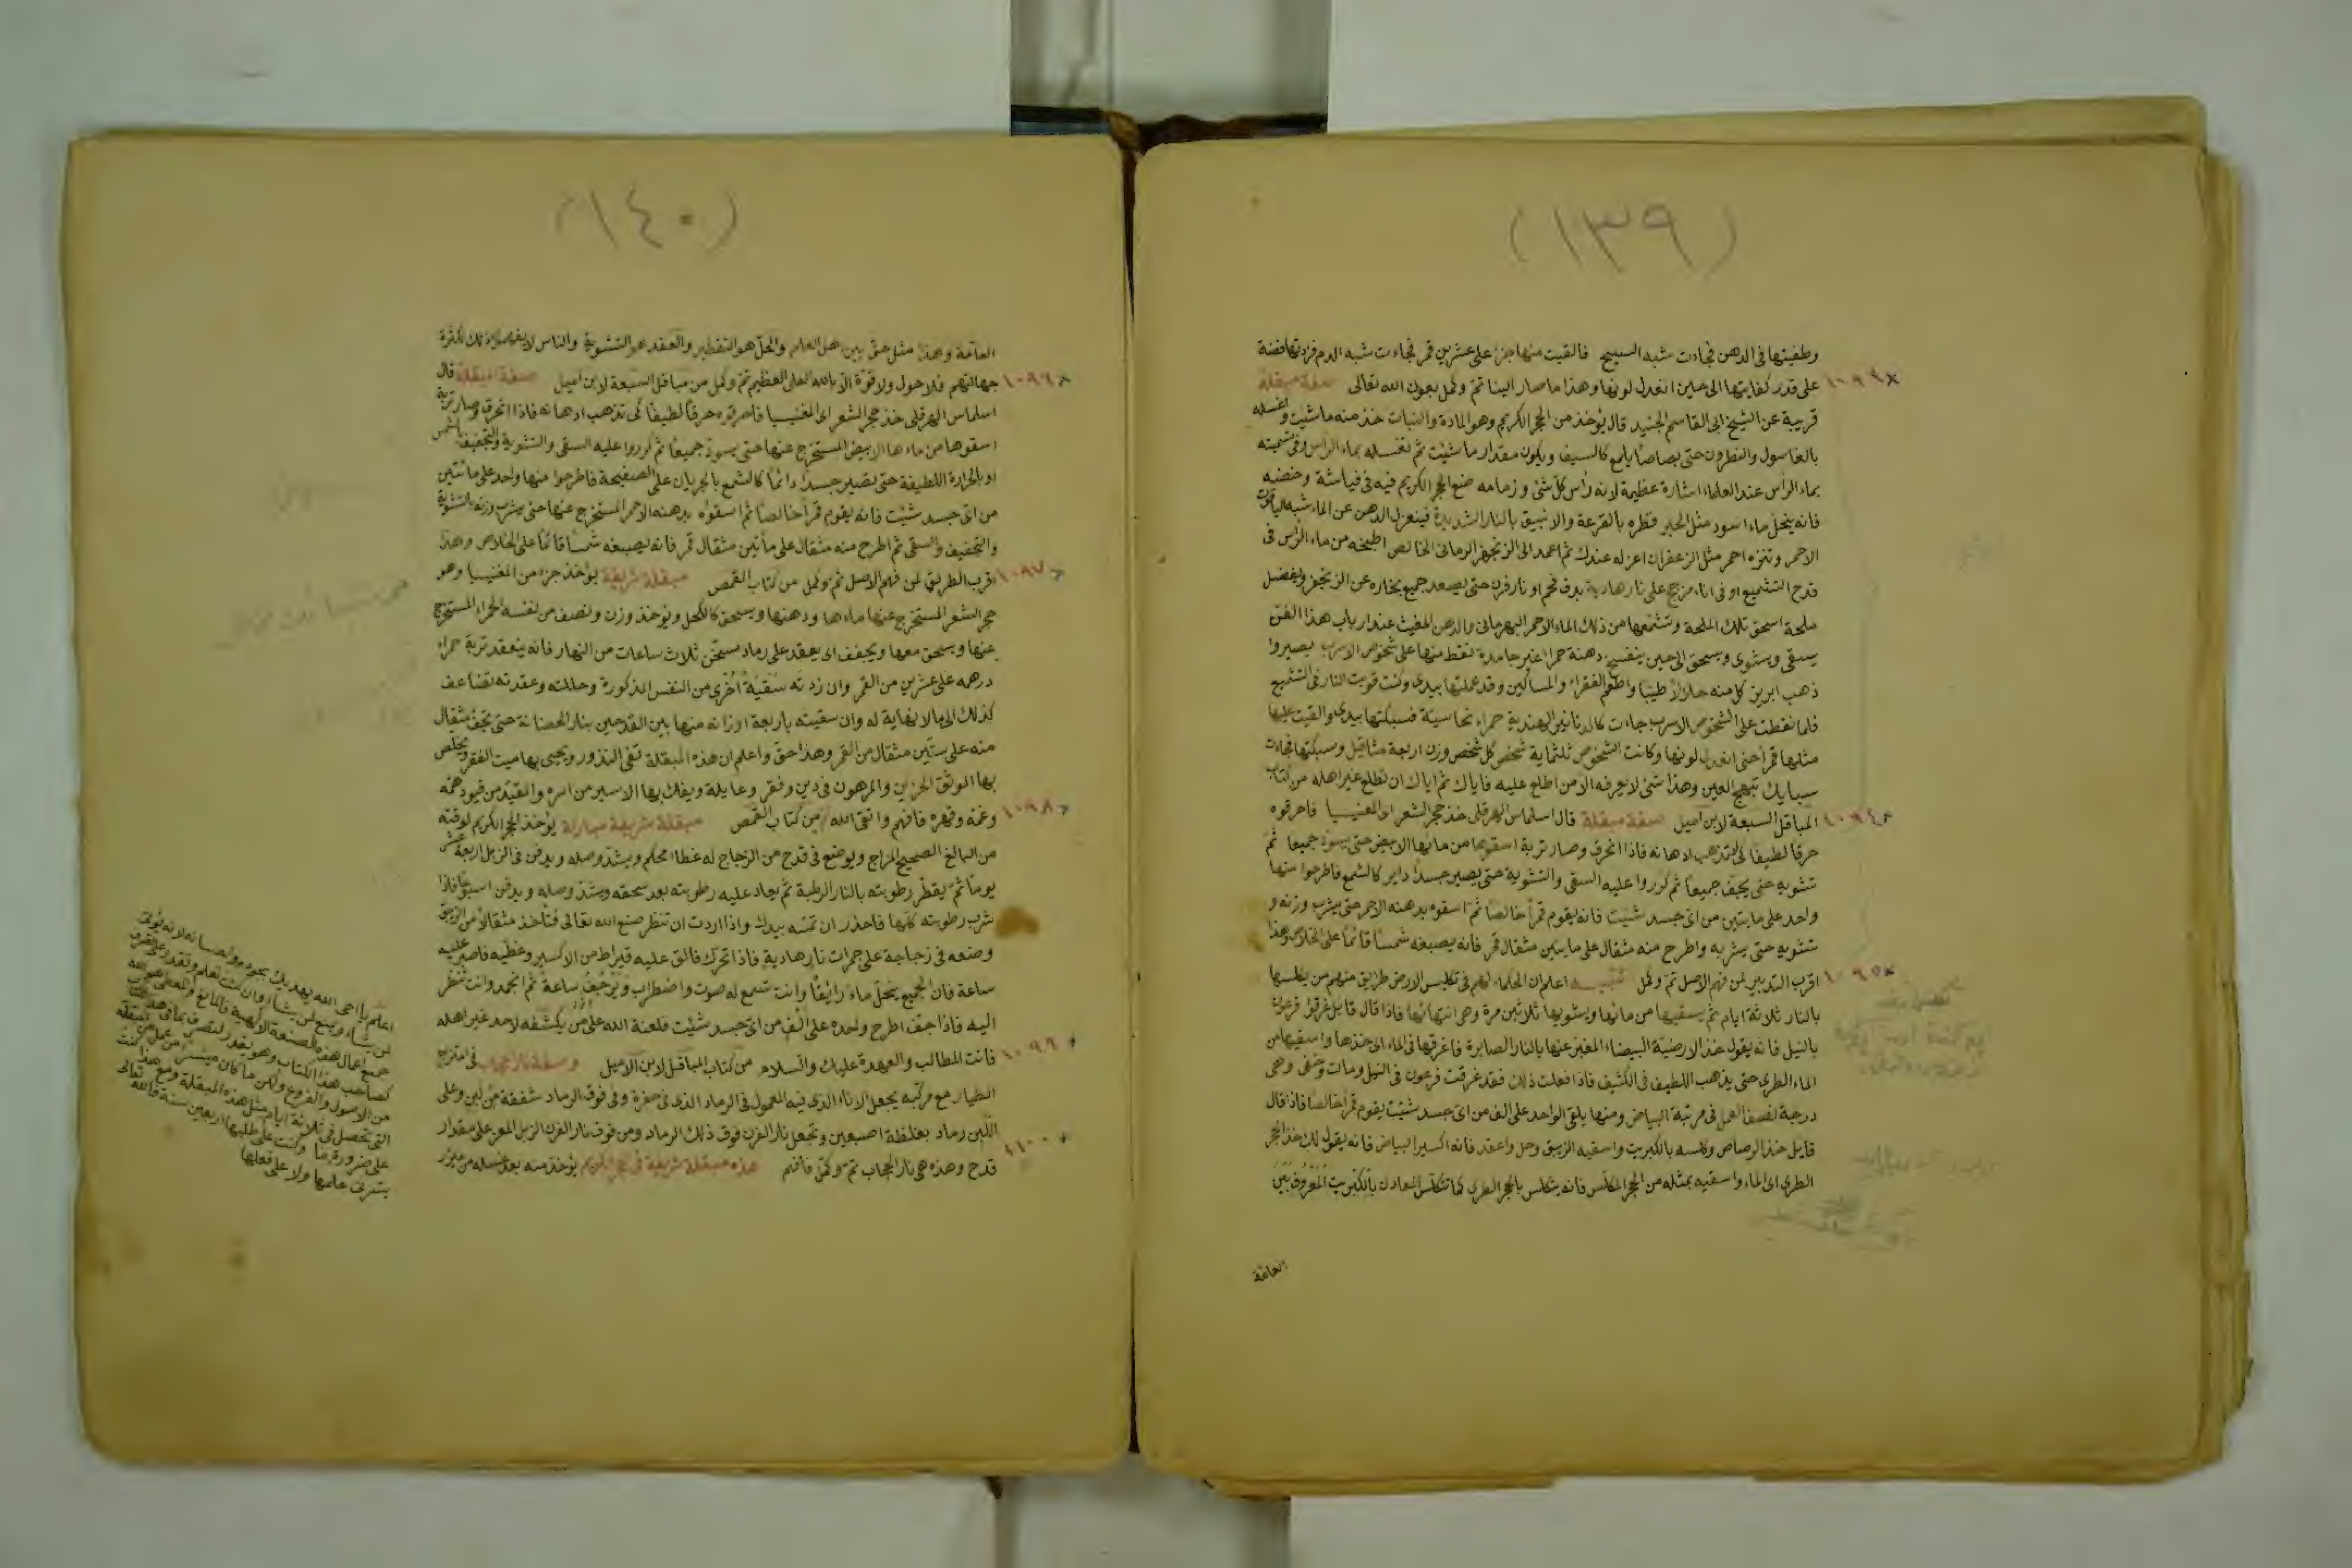 (١٣٩)
وطفيتها فى الدهن فجاءت شبه السبيج فالقيت منها جزءا على عشرين قمر فجاءت شبه الدم فزدتها فضة
على قدر كفايتها الى حين انعدل لونها وهذا ما صار الينا تم وكمل بعون الله تعالى صفة مبقلة
١٠٩٣
قريبة عن الشيخ ابى القاسم الجنيد قال يؤخذ من الحجر الكريم وهو المادة والنبات خذ منه ما شيت واغسله
بالغاسول والنطرون حتى بصاصا يلمع كالسيف ويكون مقدار ما شيت ثم تغسله بماء الراس وفى تسميته
بماء الراس عند العلماء اشارة عظيمة لانه راس كل شئ وزمامه ضع الحجر الكريم فيه فى فياشة وخضه
فانه ينحل ماء اسود مثل الحبر قطره بالقرعة والانبيق بالنار الشديدة فينعزل الدهن عن الماء شبه الياقوت
الاحمر وتنزه احمر مثل الزعفران اعزله عندك ثم اعمد الى الزنجفر الرمانى الخالص اطبخه من ماء الراس فى
قدح التشميع او فى اناء مزجج على نار هادية بدق فحم او نار فرن حتى يصعد جميع بخاره عن الزنجفر ويفضل
ملحة اسحق تلك الملحة وتشمعها من ذلك الماء الاحمر البهرمانى والدهن المغيث عند ارباب هذا الفن
يسقى ويشوى ويسحق الى حين ينفسح دهنة حمراء غير جامدة نقط منها على شخوص الاسرب يصيروا
ذهب ابريز كل منه حلالا طيبا واطعم الفقراء والمساكين وقد عملتها بيدى وكنت قويت النار فى التشميع
فلما نقطت على الشخوص الاسرب جاءت كالدنانير الهندية حمراء نحاسية فسبكتها بيدى والقيت عليها
مثلها قمرا حتى انعدل لونها وكانت الشخوص ثلثماية شخص كل شخص وزن اربعة مثاقيل وسبكتها فجاءت
سبايك تبهج العين وهذا شئ لا يعرفه الا من اطلع عليه فاياك ثم اياك ان تطلع غير اهله من كتاب
المباقل السبعة لابن اميل صفة مبقلة قال اسلماس الهرقلى خذ حجر الشعر اى المغنيسيا فاحرقوه
١٠٩٤
حرقا لطيفا كى تذهب ادهانه فاذا انحرق وصار تربة اسقوها من مايها الابيض حتى يسود جميعا ثم
تشويه حتى يجف جميعا ثم كرروا عليه السقى والتشوية حتى يصير جسدا داير كالشمع فاطرحوا منها
واحد على مايتين من اى جسد شيت فانه يقوم قمرا خالصا ثم اسقوه بدهنه الاحمر حتى يشرب وزنه و
تشويه حتى يشربه واطرح منه مثقال على مايتين مثقال قمر فانه يصبغه شمسا قائما على الخلاص وهذا
اقرب التدبير لمن فهم الاصل تم وكمل تنبيه اعلم ان الحكماء لهم فى تكليس الارض طرايق منهم من يكلسها
١٠٩٥
بالنار ثلاثة ايام ثم يسقيها من مائها ويشويها ثلاثين مرة وهى انتهائها فاذا قال قايل غرقوا فرعون
بالنيل فانه يقول خذ الارضية البيضاء المغبر عنها بالنار الصابرة فاغرقها فى الماء اى خذها واسقيها من
الماء الطرى حتى يذهب اللطيف فى الكثيف فاذا فعلت ذلك فقد غرقت فرعون فى النيل ومات وخفى وهى
درجة لنصف العمل فى مرتبة البياض ومنها يلقى الواحد على الف من اى جسد شيت يقوم قمرا خالصا فاذا قال
قايل خذ الرصاص وكلسه بالكبريت واسقيه الزيبق وحل واعقد فانه اكسير البياض فانه يقول لك خذ الحجر
الطرى اى الماء واسقيه بمثله من الحجر المكلس فانه يتكلس بالحجر الطرى كما تتكلس المعادن بالكبريت المعروف بين
العامة
(١٤٠)
العامة وهذا مثل حق بين اهل العلم والحل هو التقطير والعقد هو التشوية والناس لا يفهموا ذلك لكثرة
جهالتهم فلا حول ولا قوة الا بالله العلى العظيم تم وكمل من مباقل السبعة لابن اميل صفة مبقلة قال
١٠٩٦
اسلماس الهرقلى خذ حجر الشعر اى المغنيسيا فاحرقوه حرقا لطيفا كى تذهب ادهانه فاذا انحرق وصار تربة
اسقوها من ماءها الابيض المستخرج عنها حتى يسود جميعا ثم كرروا عليه السقى والتشوية والتجفيف بالشمس
او بالحرارة اللطيفة حتى تصير جسدا دائما كالشمع بالجريان على الصفيحة فاطرحوا منها واحد على مائتين
من اى جسد شيت فانه يقوم قمرا خالصا ثم اسقوه بدهنه الاحمر المستخرج عنها حتى يشرب وزنه بالتشوية
والتجفيف والسقى ثم اطرح منه مثقال على مأتين مثقال قمر فانه يصبغه شمسا قائما على الخلاص وهذا
اقرب الطريق لمن فهم الاصل تم وكمل من كتاب القمص مبقلة شريفة يؤخذ جزء من المغنيسيا وهو
١٠٩٧
حجر الشعر المستخرج عنها ماءها ودهنها ويسحق كالكحل ويؤخذ وزن ونصف من نفسه الحمراء المستخرج
عنها ويسحق معها ويجفف الى يعقد على رماد مسخن ثلاث ساعات من النهار فانه ينعقد تربة حمراء
درهمه على عشرين من القمر وان زدته سقية اخرى من النفس المذكورة وحللته وعقدته تضاعف
كذلك الى ما لا نهاية له وان سقيته باربعة اوزانه منها بين القدحين بنار الحضانة حتى تجف مثقال
منه على ستين مثقال من القمر وهذا حق واعلم ان هذه المبقلة تفى النذور ويحيى بها ميت الفقر ويخلص
بها الموثق الحزين والمرهون فى دين وفقر وعايلة ويفك بها الاسير من اسره والمقيد من قيود همه
وغمه وقهره فافهم واتقى الله من كتاب القمص مبقلة شريفة مباركة يؤخذ الحجر الكريم لوقته
١٠٩٨
من البالغ الصحيح المزاج ويوضع فى قدح من الزجاج له غطاء محكم ويشد وصله ويدفن فى الزبل اربعة عشر
يوما ثم يقطر رطوبته بالنار الرطبة ثم يعاد عليه رطوبته بعد سحقه ويشد وصله ويدفن اسبوعا فاذا
شرب رطوبته كلها فاحذر ان تمسه بيدك واذا اردت ان تنظر صنع الله تعالى فتاخذ مثقالا من الزيبق
وضعه فى زجاجة على جمرات نار هادية فاذا تحرك فالق عليه قيراط من الاكسير وغطيه فاصبر عليه
ساعة فان الجميع ينحل ماء رايقا وانت تسمع له صوت واضطراب وترجيف ساعة ثم انجمد وانت تنظر
اليه فاذا جف اطرح واحده على الف من اى جسد شيت فلعنة الله على من يكشفه لاحد غير اهله
فانت المطالب والعهدة عليك والسلام من كتاب المباقل لابن الاميل وصفة نار عجاب فى امتزج
١٠٩٩
الطيار مع مركبه يجعل الاناء الذى فيه المعمول فى الرماد الذى فى حفرة وفى فوق الرماد شقفة من لبن وعلى
اللبن رماد بغلظة اصبعين وتجعل نار الفرن فوق ذلك الرماد ومن فوق نار الفرن الزبل المعز على مقدار
قدح وهذه هى نار العجاب تم وكمل فافهم هذه مبقلة شريفة فى الحجر الكريم يؤخذ منه بعد غسله من ميزر
١١٠٠
اعلم يا اخى الله يهديك بجوده واحسانه لانه يؤتى
لمن يشاء ويمنع لمن يشاء وان كنت تعلم وتقدر على التصرف
جميع اعمال هذه الصنعة الالهية فالمانع والمعطى هو الله
كصاحب هذا الكتاب وهو يقدر لتصرف بما فى هذا الكتاب
من الاصول والفروع ولكن ما كان ميسر من عمل مبقلة
التى تحصل فى ثلاثة ايام مثل هذه المبقلة ومع هذا كنت
على ضرورة ما وكنت على طلبها اربعين سنة فالله تعالى
يشرف عالمها ولا على فعلها